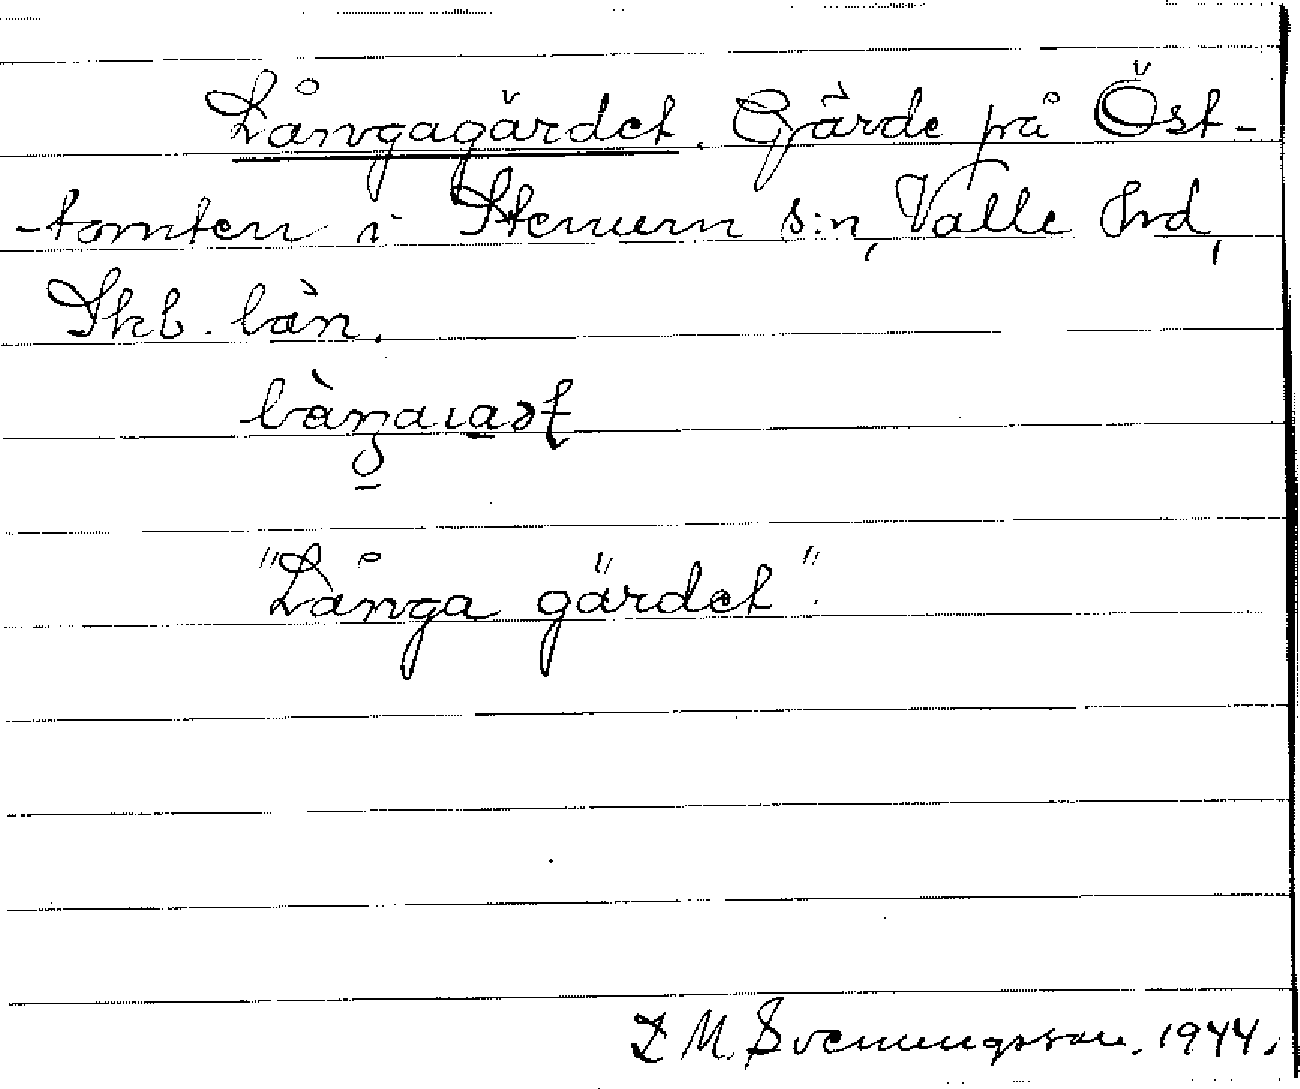 Långagärdet. Gärde på Öst-
tomten i Stenum s:n, Valle hrd,
Skb. län.
"Långa gärdet".
M. Svenungsson. 1944.